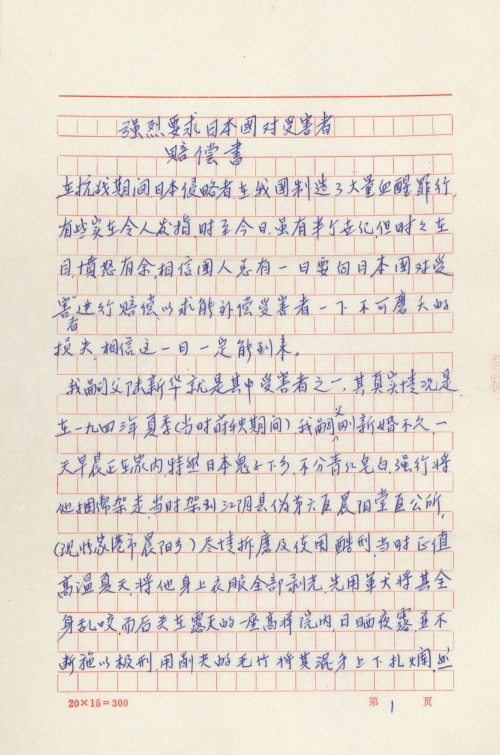 强烈要求日本国对受害者
赔偿书
在抗战期间日本侵略者在我国制造了大量血醒罪行,
有些实在令人发指,时至今日,虽有半个世纪,但时之在
目,愤怒有余,相信国人总有一日要向日本国对受
害者进行赔偿,以求能补偿受害者一下不可磨灭的
损失,相信这一日一定能到来。
我嗣父陆新华就是其中受害者之一,其真实情况是
在一九四三年夏季(当时莳秧期间)我嗣父刚新婚不久,一
天早晨正在家内,特然日本鬼子下乡,不分青红皂白,强行将
他捆绑架走,当时架到江阴县伪第六区晨阳堂区公所,
(现张家港市晨阳乡)尽情折磨及使用酷刑,当时正值
高温夏天,将他身上衣服全部剥光,先用军犬将其全
身乱咬,而后关在露天的一座高样院内,日晒夜露,并不
断施以极刑,用削尖的毛竹将其混身上下扎烂,然
20×15=300
第 1 页